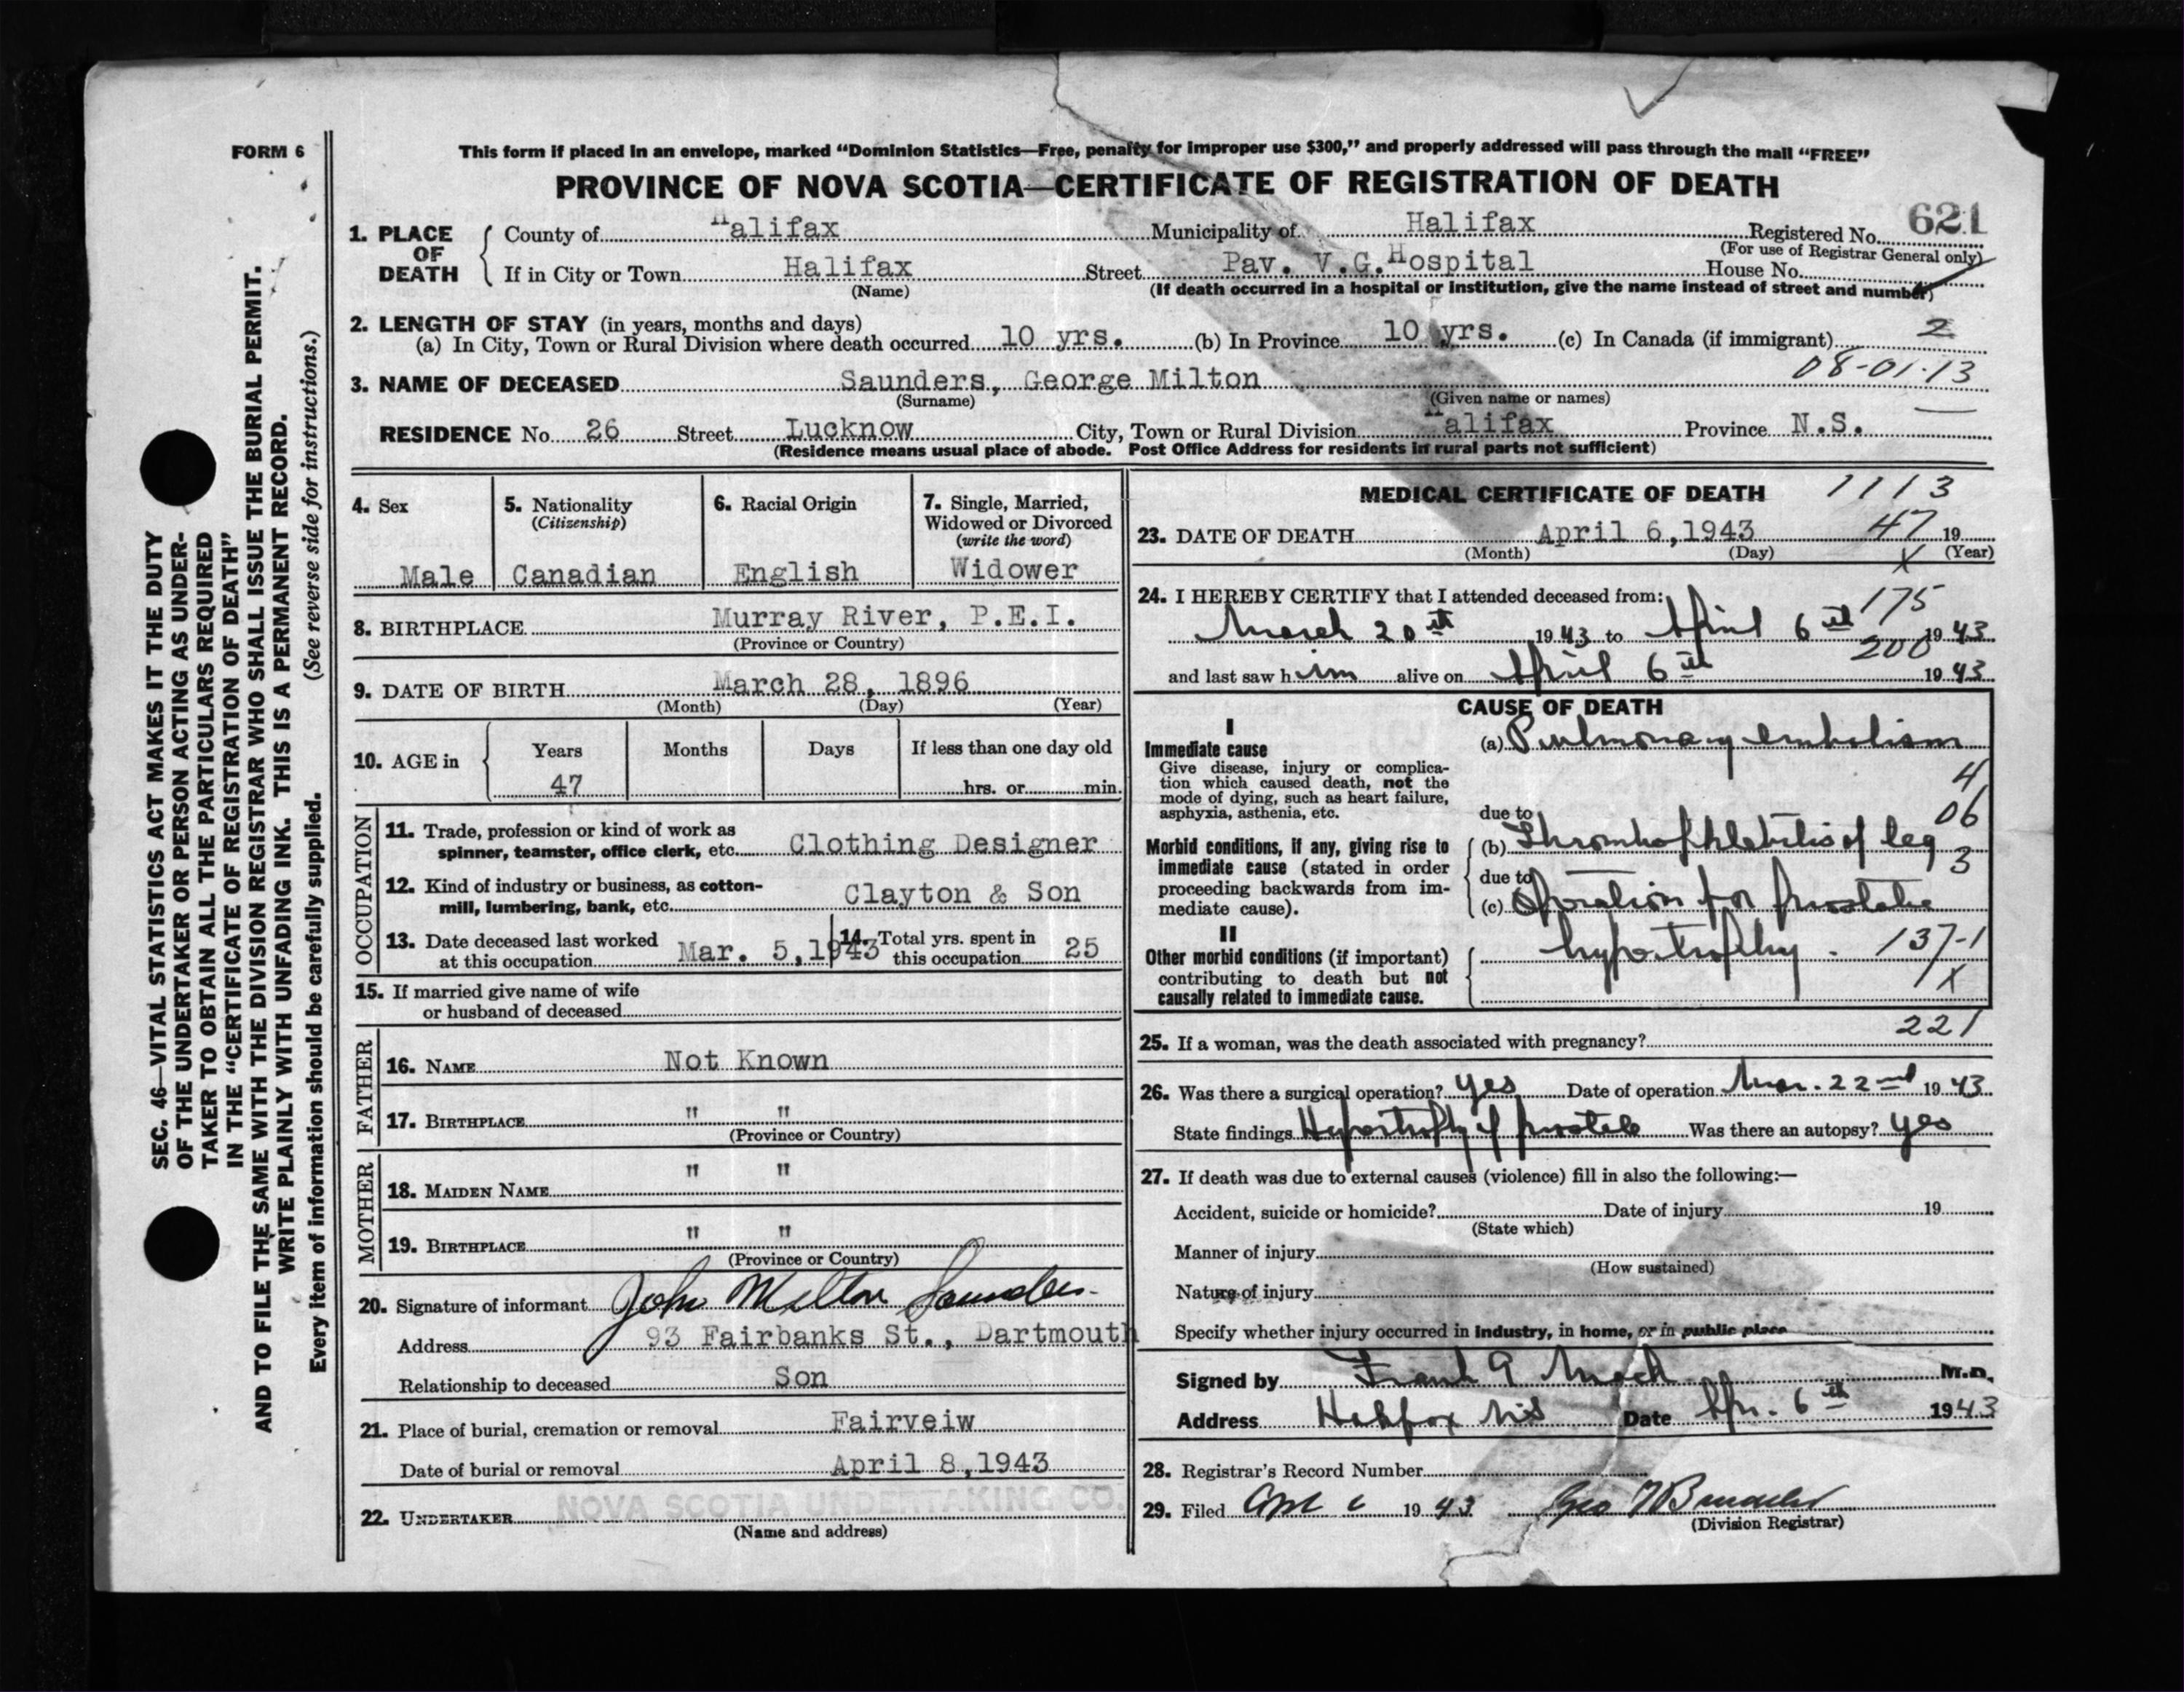 FORM 6
This form if placed in an envelope, marked “Dominion Statistics—Free, penalty for improper use $300,” and properly addressed will pass through the mail “FREE”
PROVINCE OF NOVA SCOTIA—CERTIFICATE OF REGISTRATION OF DEATH
621
1. PLACE OF DEATH
County of Halifax Municipality of Halifax Registered No.
(For use of Registrar General only)
If in City or Town Halifax Street Pav. V.G.Hospital House No.
(Name) (If death occurred in a hospital or institution, give the name instead of street and number)
2. LENGTH OF STAY (in years, months and days)
(a) In City, Town or Rural Division where death occurred 10 yrs. (b) In Province 10 yrs. (c) In Canada (if immigrant) 2
08-01-13
3. NAME OF DECEASED Saunders, George Milton
(Surname) (Given name or names)
RESIDENCE No. 26 Street Lucknow City, Town or Rural Division Halifax Province N.S.
(Residence means usual place of abode. Post Office Address for residents in rural parts not sufficient)
4. Sex
Male
5. Nationality
(Citizenship)
Canadian
6. Racial Origin
English
7. Single, Married,
Widowed or Divorced
(write the word)
Widower
8. BIRTHPLACE Murray River, P.E.I.
(Province or Country)
9. DATE OF BIRTH March 28, 1896
(Month) (Day) (Year)
10. AGE in Years Months Days If less than one day old
47 hrs. or min.
OCCUPATION
11. Trade, profession or kind of work as
spinner, teamster, office clerk, etc. Clothing Designer
12. Kind of industry or business, as cotton-
mill, lumbering, bank, etc. Clayton & Son
13. Date deceased last worked
at this occupation Mar. 5,1943
14. Total yrs. spent in
this occupation 25
15. If married give name of wife
or husband of deceased
FATHER
16. NAME Not Known
17. BIRTHPLACE " "
(Province or Country)
MOTHER
18. MAIDEN NAME " "
19. BIRTHPLACE " "
(Province or Country)
20. Signature of informant John Milton Saunders
Address 93 Fairbanks St., Dartmouth
Relationship to deceased Son
21. Place of burial, cremation or removal Fairveiw
Date of burial or removal April 8,1943
22. UNDERTAKER NOVA SCOTIA UNDERTAKING CO.
(Name and address)
MEDICAL CERTIFICATE OF DEATH 1113
23. DATE OF DEATH April 6,1943 47 19
(Month) (Day) (Year)
X
24. I HEREBY CERTIFY that I attended deceased from: 175
March 20th 1943 to April 6th 1943
200
and last saw him alive on April 6th 1943
CAUSE OF DEATH
I
Immediate cause
Give disease, injury or complica-
tion which caused death, not the
mode of dying, such as heart failure,
asphyxia, asthenia, etc.
(a) Pulmonary embolism
4
06
due to
Morbid conditions, if any, giving rise to
immediate cause (stated in order
proceeding backwards from im-
mediate cause).
(b) Thrombophlebitis of leg
3
due to
(c) Operation for prostatic
hypertrophy. 137-1
X
II
Other morbid conditions (if important)
contributing to death but not
causally related to immediate cause.
221
25. If a woman, was the death associated with pregnancy?
26. Was there a surgical operation? yes Date of operation Mar. 22nd 1943
State findings Hypertrophy of prostate Was there an autopsy? yes
27. If death was due to external causes (violence) fill in also the following:—
Accident, suicide or homicide? Date of injury 19
(State which)
Manner of injury
(How sustained)
Nature of injury
Specify whether injury occurred in industry, in home, or in public place
Signed by Frank G Mack M.D.
Address Halifax NS Date Apr. 6th 1943
28. Registrar's Record Number
29. Filed Apl 6 1943 Geo
(Division Registrar)
SEC. 46—VITAL STATISTICS ACT MAKES IT THE DUTY
OF THE UNDERTAKER OR PERSON ACTING AS UNDER-
TAKER TO OBTAIN ALL THE PARTICULARS REQUIRED
IN THE “CERTIFICATE OF REGISTRATION OF DEATH”
AND TO FILE THE SAME WITH THE DIVISION REGISTRAR WHO SHALL ISSUE THE BURIAL PERMIT.
WRITE PLAINLY WITH UNFADING INK. THIS IS A PERMANENT RECORD.
Every item of information should be carefully supplied. (See reverse side for instructions.)